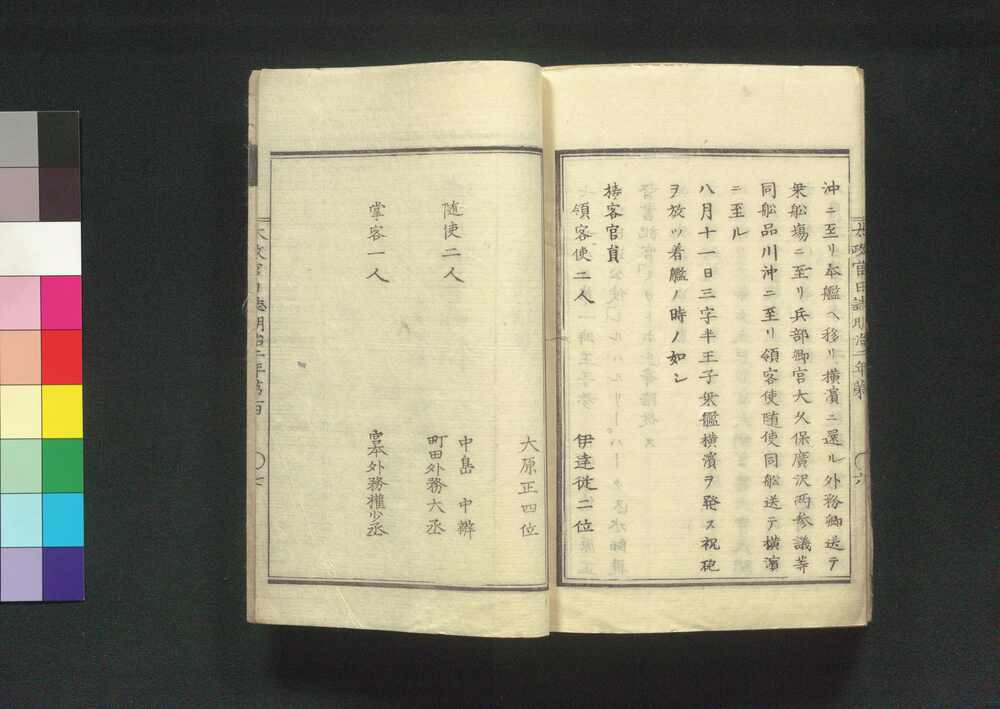 沖ニ至リ本艦ヘ移リ横濱ニ還ル外務卿送テ
乗船場ニ至リ兵部卿官大久保廣沢両參議等
同船品川沖ニ至リ領客使随使同船送テ横濱
ニ至ル
八月十一日三字半王子乗艦横濱ヲ発ス祝砲
ヲ放ツ着艦ノ時ノ如シ
接客官員
領客使二人 伊達従二位
大原正四位
随使二人 中島中辨
町田外務大丞
掌客一人 宮本外務權少丞
太政官日誌明治二年第百 七